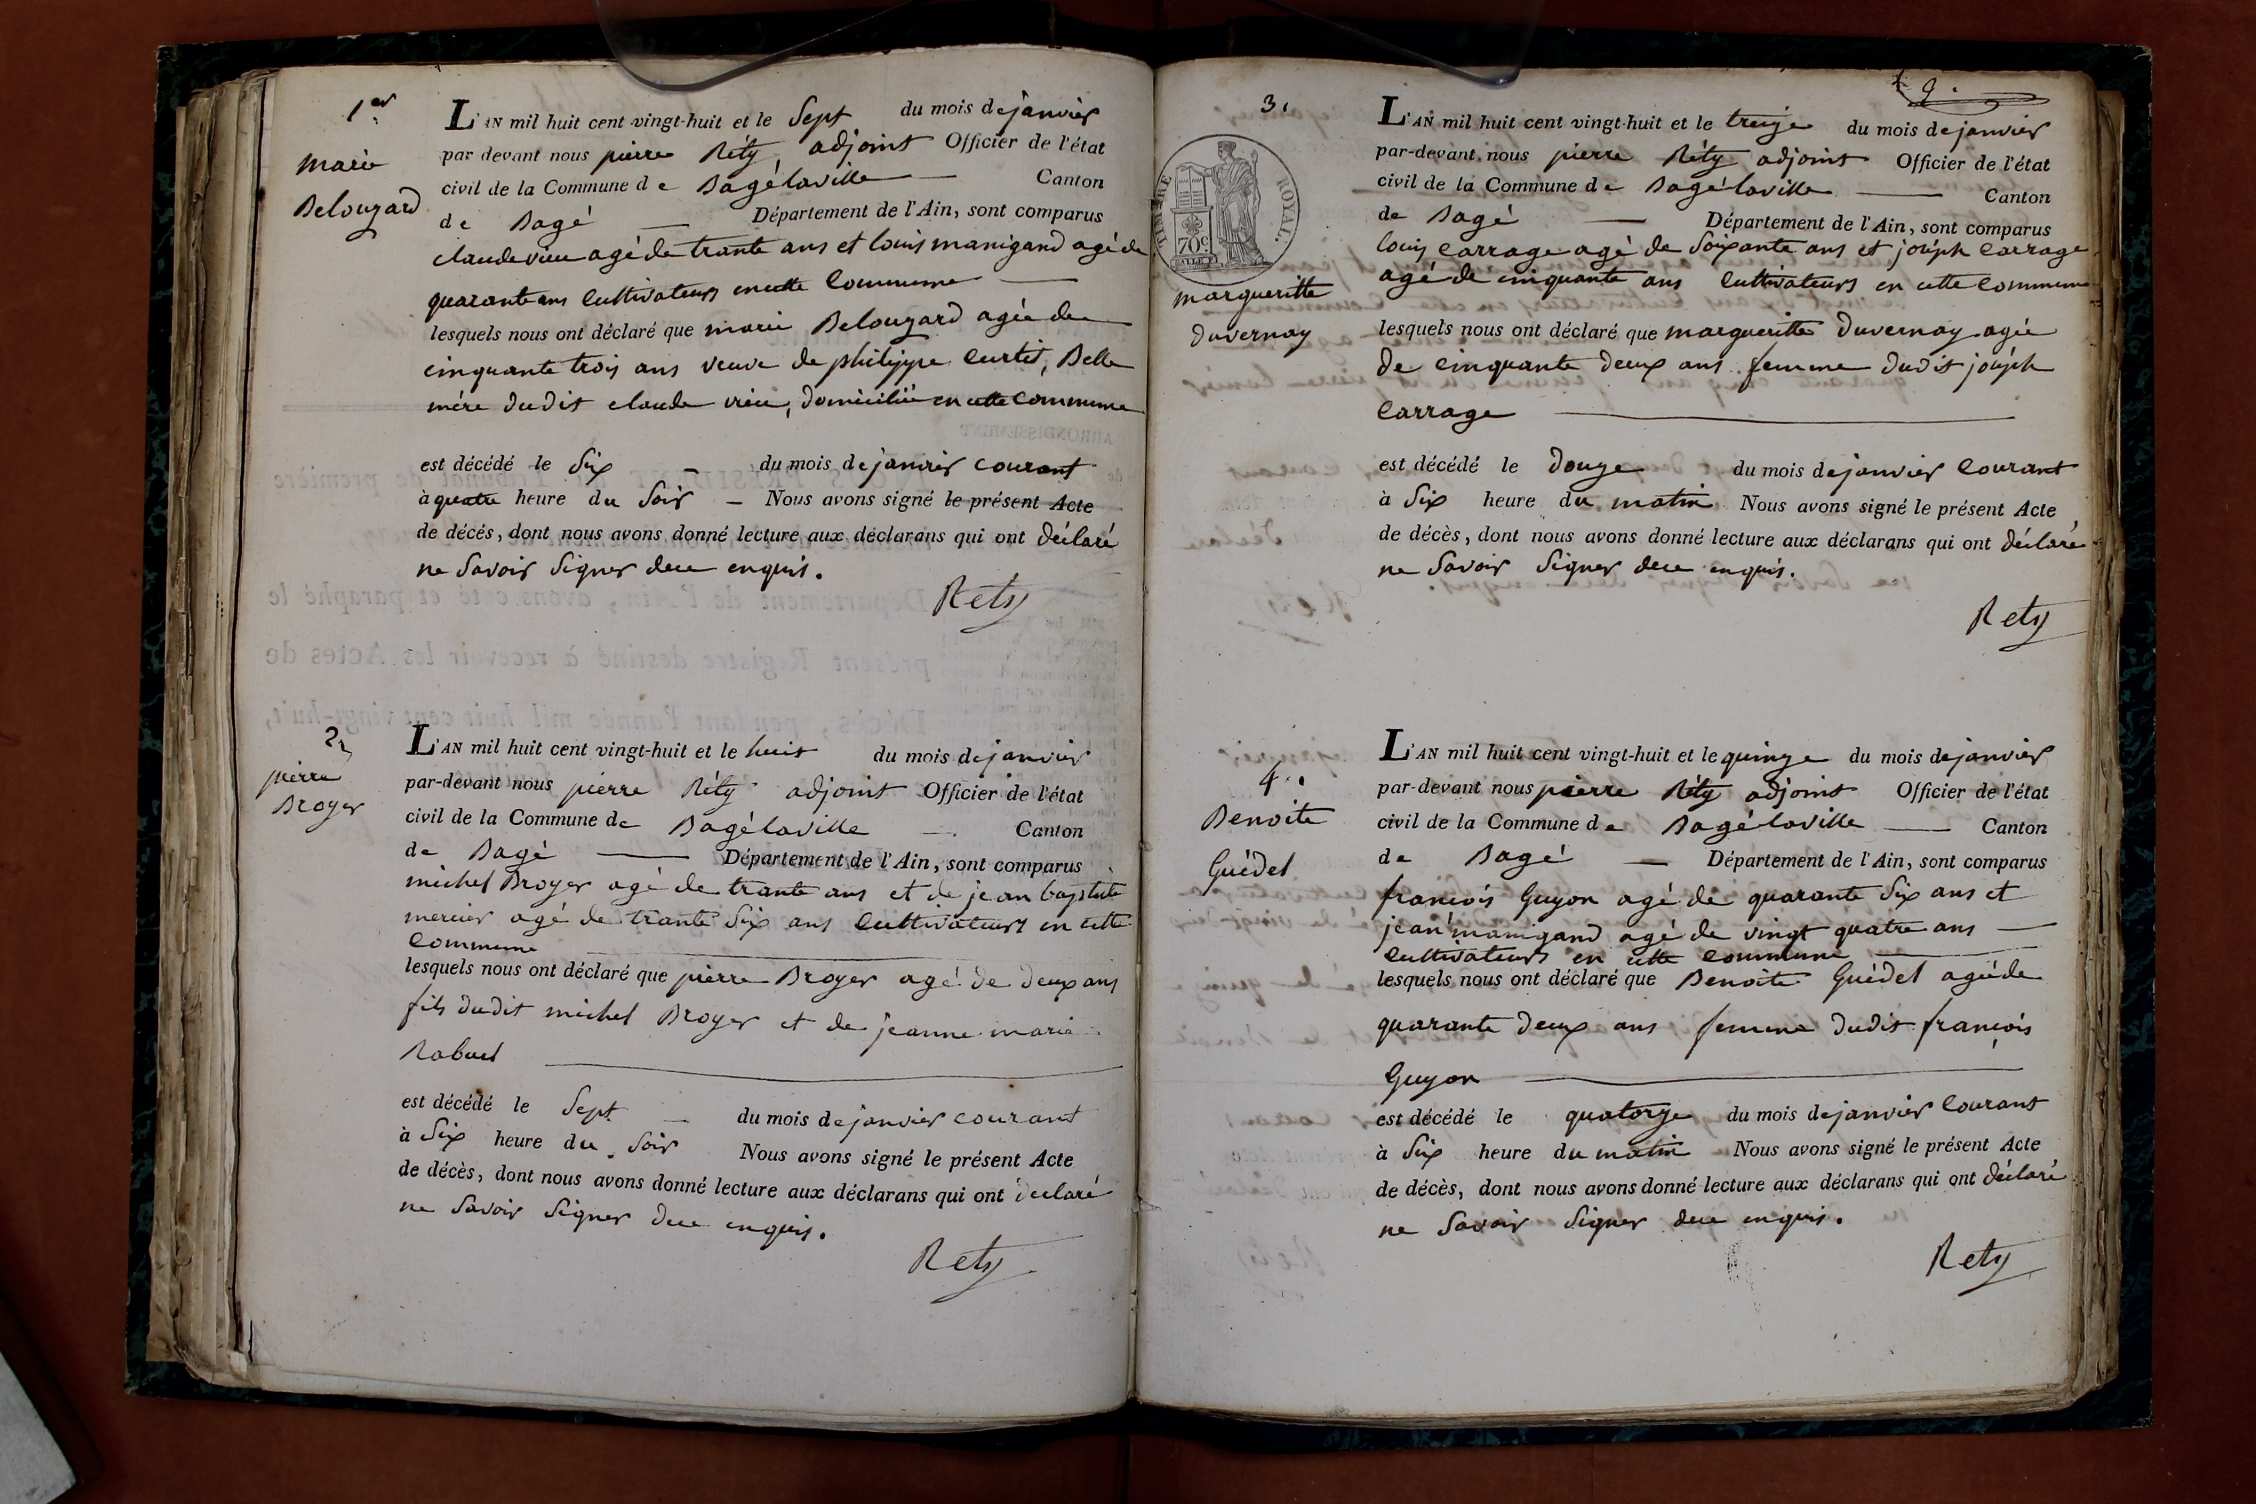 1er
marie
Belouzard
L'AN mil huit cent vingt-huit et le Sept du mois de janvier
par devant nous pierre Réty, adjoint Officier de l'état
civil de la Commune de Bagélaville — Canton
de Bagé — Département de l'Ain, sont comparus
claude vieu agé de trante ans et louis manigand agé de
quarante ans Cultivateurs en cette Commune —
lesquels nous ont déclaré que marie Belouzard agée de
cinquante trois ans veuve de philippe Curtil, Belle
mére dudit claude vieu, domiciliée en cette Commune
est décédé le Six — du mois de janvier courant
à quatre heure du Soir — Nous avons signé le présent Acte
de décés, dont nous avons donné lecture aux déclarans qui ont déclaré
ne Savoir Signer dece enquis.
Rety
2
pierre
Broyer
L'AN mil huit cent vingt-huit et le huit du mois de janvier
par-devant nous pierre Réty adjoint Officier de l'état
civil de la Commune de Bagélaville — Canton
de Bagé — Département de l'Ain, sont comparus
michel Broyer agé de trante ans et de jean baptiste
mercier agé de trante Six ans Cultivateurs en cette
Commune —
lesquels nous ont déclaré que pierre Broyer agé de deux ans
fils dudit michel Broyer et de jeanne marie
Rabuel —
est décédé le Sept — du mois de janvier courant
à Six heure du Soir Nous avons signé le présent Acte
de décès, dont nous avons donné lecture aux déclarans qui ont déclaré
ne Savoir Signer dece enquis.
Rety
9.
3.
TIMBRE ROYAL.
70c
margueritte
duvernay
L'AN mil huit cent vingt-huit et le treize du mois de janvier
par-devant nous pierre Réty adjoint Officier de l'état
civil de la Commune de Bagélaville — Canton
de Bagé — Département de l'Ain, sont comparus
louis Carrage agé de Soixante ans et joséph Carrage
agé de cinquante ans Cultivateurs en cette Commune
lesquels nous ont déclaré que margueritte duvernay agée
de Cinquante deux ans femme dudit joséph
Carrage —
est décédé le douze du mois de janvier Courant
à Six heure du matin Nous avons signé le présent Acte
de décès, dont nous avons donné lecture aux déclarans qui ont déclaré
ne Savoir Signer dece enquis.
Rety
4.
Benoite
Guédel
L'AN mil huit cent vingt-huit et le quinze du mois de janvier
par-devant nous pierre Réty adjoint Officier de l'état
civil de la Commune de Bagélaville — Canton
de Bagé — Département de l'Ain, sont comparus
françois Guyon agé de quarante Six ans et
jean manigand agé de vingt quatre ans —
Cultivateurs en cette Commune —
lesquels nous ont déclaré que Benoite Guédel agée de
quarante deux ans femme dudit françois
Guyon —
est décédé le quatorze du mois de janvier Courant
à Six heure du matin Nous avons signé le présent Acte
de décès, dont nous avons donné lecture aux déclarans qui ont déclaré
ne Savoir Signer dece enquis.
Rety